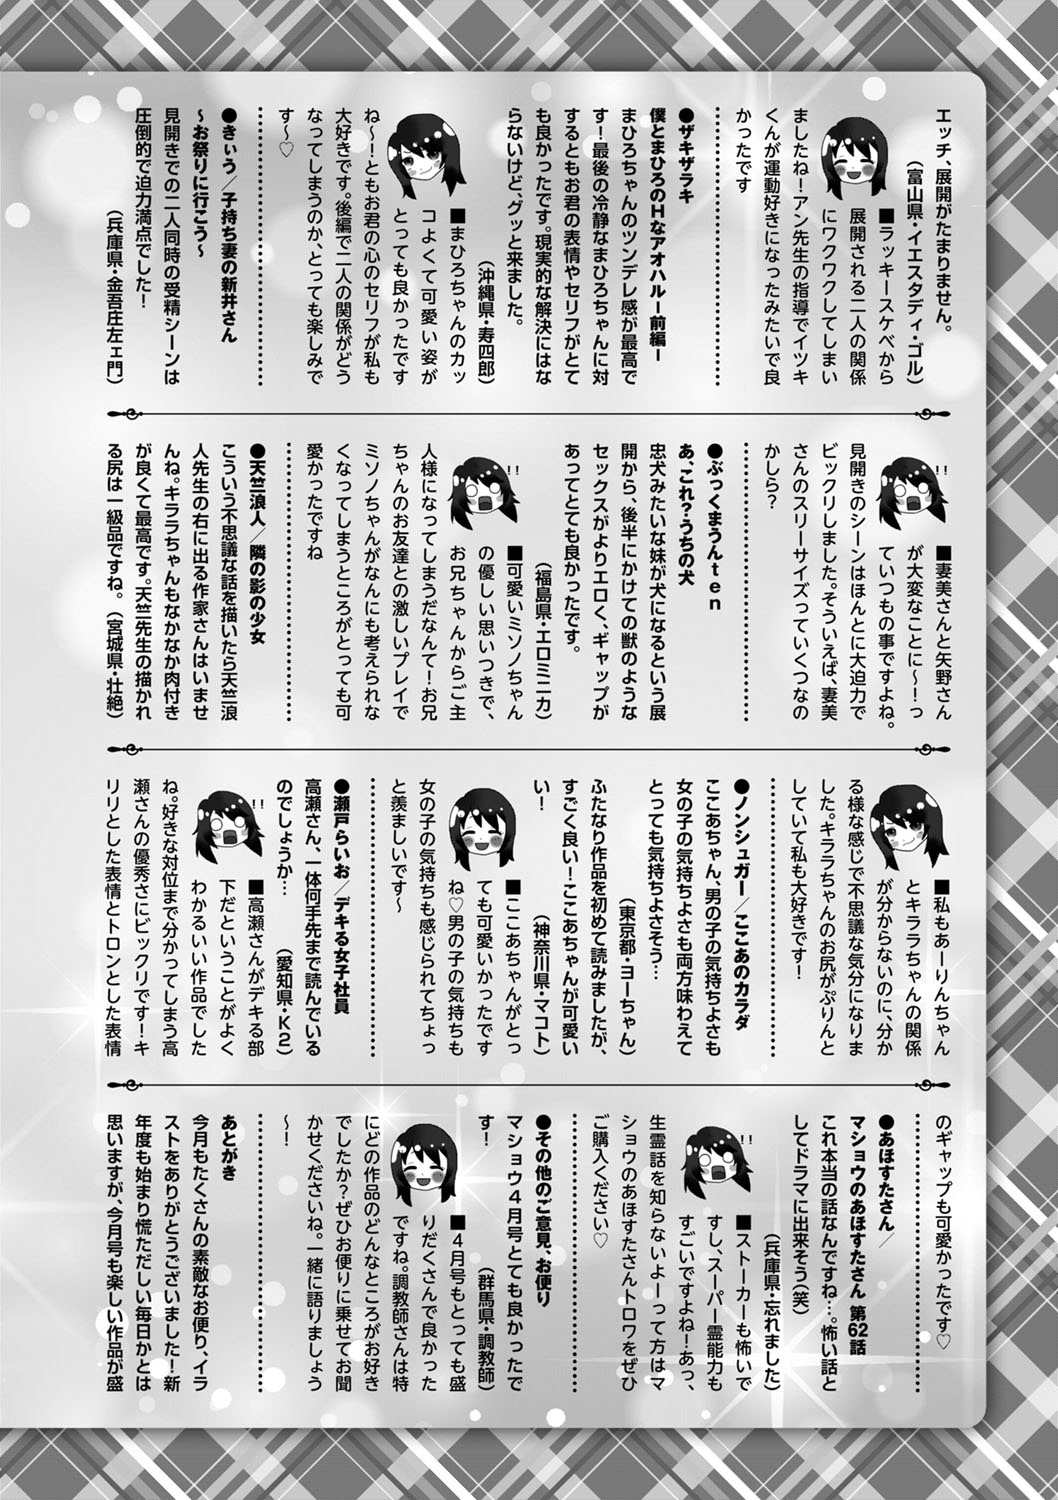 エッチ、展開がたまりません。
（富山県・イエスタディ・ゴル）
■ラッキースケベから
展開される二人の関係
にワクワクしてしまい
ましたね！アン先生の指導でイツキ
くんが運動好きになったみたいで良
かったです
●ザキザラキ
僕とまひろのHなアオハルー前編ー
まひろちゃんのツンデレ感が最高で
す！最後の冷静なまひろちゃんに対
するともお君の表情やセリフがとて
も良かったです。現実的な解決にはな
らないけど、グッと来ました。
（沖縄県・寿四郎）
■まひろちゃんのカッ
コよくて可愛い姿が
とっても良かったです
ね～！ともお君の心のセリフが私も
大好きです。後編で二人の関係がどう
なってしまうのか、とっても楽しみで
す～♡
●きぃう／子持ち妻の新井さん
～お祭りに行こう～
見開きでの二人同時の受精シーンは
圧倒的で迫力満点でした！
（兵庫県・金吾庄左ェ門）
■妻美さんと矢野さん
が大変なことに～！っ
ていつもの事ですよね。
見開きのシーンはほんとに大迫力で
ビックリしました。そういえば、妻美
さんのスリーサイズっていくつなの
かしら？
●ぶっくまうんｔｅｎ
あ、これ？うちの犬
忠犬みたいな妹が犬になるという展
開から、後半にかけての獣のような
セックスがよりエロく、ギャップが
あってとても良かったです。
（福島県・エロミニカ）
■可愛いミソノちゃん
の優しい思いつきで、
お兄ちゃんからご主
人様になってしまうだなんて！お兄
ちゃんのお友達との激しいプレイで
ミソノちゃんがなんにも考えられな
くなってしまうところがとっても可
愛かったですね
●天竺浪人／隣の影の少女
こういう不思議な話を描いたら天竺浪
人先生の右に出る作家さんはいませ
んね。キララちゃんもなかなか肉付き
が良くて最高です。天竺先生の描かれ
る尻は一級品ですね。（宮城県・壮絶）
■私もあーりんちゃん
とキララちゃんの関係
が分からないのに、分か
る様な感じで不思議な気分になりま
した。キララちゃんのお尻がぷりんと
していて私も大好きです！
●ノンシュガー／ここあのカラダ
ここあちゃん、男の子の気持ちよさも
女の子の気持ちよさも両方味わえて
とっても気持ちよさそう…
（東京都・ヨーちゃん）
ふたなり作品を初めて読みましたが、
すごく良い！ここあちゃんが可愛い
い！
（神奈川県・マコト）
■ここあちゃんがとっ
ても可愛いかったです
ね♡男の子の気持ちも
女の子の気持ちも感じられてちょっ
と羨ましいです～
●瀬戸らいお／デキる女子社員
高瀬さん、一体何手先まで読んでいる
のでしょうか…
（愛知県・K2）
■高瀬さんがデキる部
下だということがよく
わかるいい作品でした
ね。好きな対位まで分かってしまう高
瀬さんの優秀さにビックリです！キ
リリとした表情とトロンとした表情
のギャップも可愛かったです♡
●あほすたさん／
マショウのあほすたさん 第62話
これ本当の話なんですね…。怖い話と
してドラマに出来そう（笑）
（兵庫県・忘れました）
■ストーカーも怖いで
すし、スーパー霊能力も
すごいですよね！あっ、
生霊話を知らないよーって方はマ
ショウのあほすたさんトロワをぜひ
ご購入ください♡
●その他のご意見、お便り
マショウ４月号とても良かったで
す！
（群馬県・調教師）
■４月号もとっても盛
りだくさんで良かった
ですね。調教師さんは特
にどの作品のどんなところがお好き
でしたか？ぜひお便りに乗せてお聞
かせくださいね。一緒に語りましょう
～！
あとがき
今月もたくさんの素敵なお便り、イラ
ストをありがとうございました！新
年度も始まり慌ただしい毎日かとは
思いますが、今月号も楽しい作品が盛